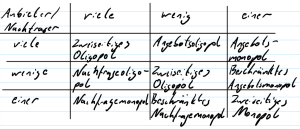 Anbieter/ viele wenig einer
Nachfrager
viele Zweiseitiges Angebotsoligopol Angebots-
Oligopol monopol
wenige Nachfrageoligo- Zweiseitiges Beschränktes
pol Oligopol Angebotsmonopol
einer Nachfragemonopol Beschränktes Zweiseitiges
Nachfragemonopol Monopol